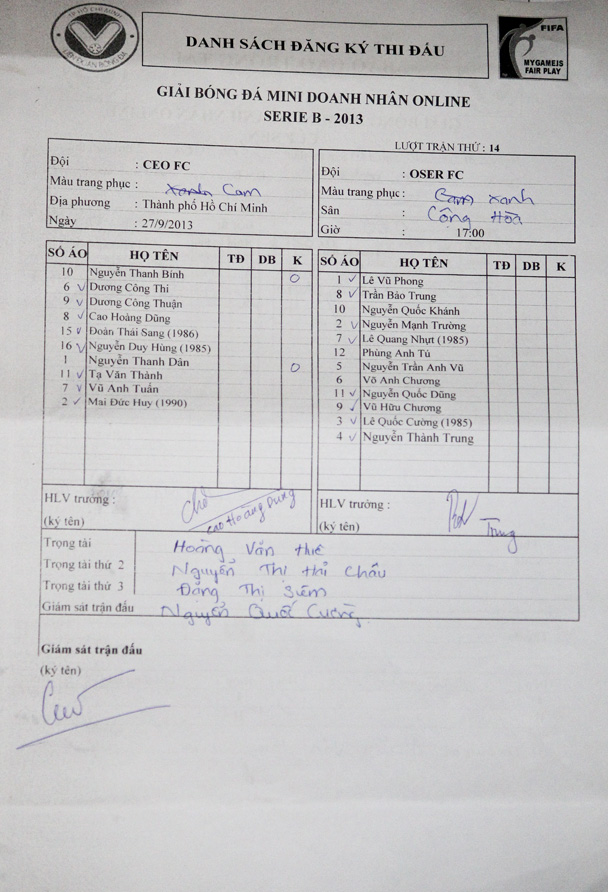 TP HỒ CHÍ MINH
DANH SÁCH ĐĂNG KÝ THI ĐẤU
FIFA
MYGAMEIS
FAIR PLAY
GIẢI BÓNG ĐÁ MINI DOANH NHÂN ONLINE
SERIE B - 2013
LƯỢT TRẬN THỨ : 14
Đội : CEO FC
Màu trang phục : Xanh Cam
Địa phương : Thành phố Hồ Chí Minh
Ngày : 27/9/2013
Đội : OSER FC
Màu trang phục : Cam Xanh
Sân : Cộng Hòa
Giờ : 17:00
SỐ ÁO HỌ TÊN TĐ DB K
10 Nguyễn Thanh Bính O
6 ✓ Dương Công Thi
9 ✓ Dương Công Thuận
8 ✓ Cao Hoàng Dũng
15 ✓ Đoàn Thái Sang (1986)
16 ✓ Nguyễn Duy Hùng (1985)
1 Nguyễn Thanh Dân O
11 ✓ Tạ Văn Thành
7 ✓ Vũ Anh Tuấn
2 ✓ Mai Đức Huy (1990)
SỐ ÁO HỌ TÊN TĐ DB K
1 ✓ Lê Vũ Phong
8 ✓ Trần Bảo Trung
10 Nguyễn Quốc Khánh
2 ✓ Nguyễn Mạnh Trường
7 ✓ Lê Quang Nhựt (1985)
12 Phùng Anh Tú
5 Nguyễn Trần Anh Vũ
6 Võ Anh Chương
11 ✓ Nguyễn Quốc Dũng
9 ✓ Vũ Hữu Chương
3 ✓ Lê Quốc Cường (1985)
4 ✓ Nguyễn Thành Trung
HLV trưởng :
(ký tên) Cao Hoàng Dũng
HLV trưởng :
(ký tên) Trung
Trọng tài Hoàng Văn
Trọng tài thứ 2 Nguyễn Thị Hải Châu
Trọng tài thứ 3 Đặng Thị Siêm
Giám sát trận đấu Nguyễn Quốc Cường
Giám sát trận đấu
(ký tên)